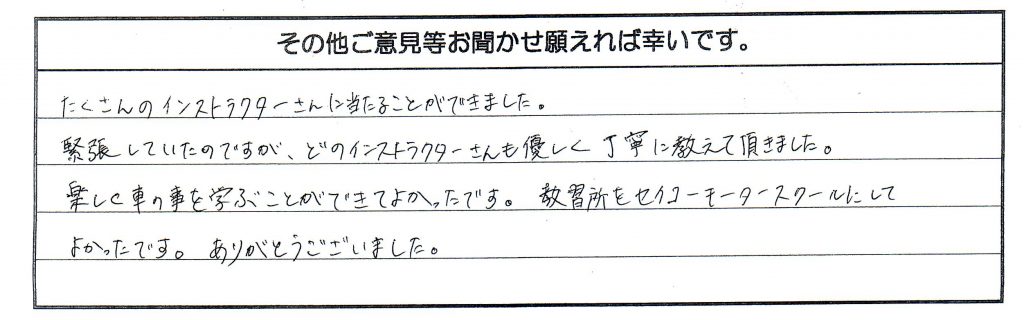 その他ご意見等お聞かせ願えれば幸いです。
たくさんのインストラクターさんに当たることができました。
緊張していたのですが、どのインストラクターさんも優しく丁寧に教えて頂きました。
楽しく車の事を学ぶことができてよかったです。 教習所をセイコーモータースクールにして
よかったです。 ありがとうございました。